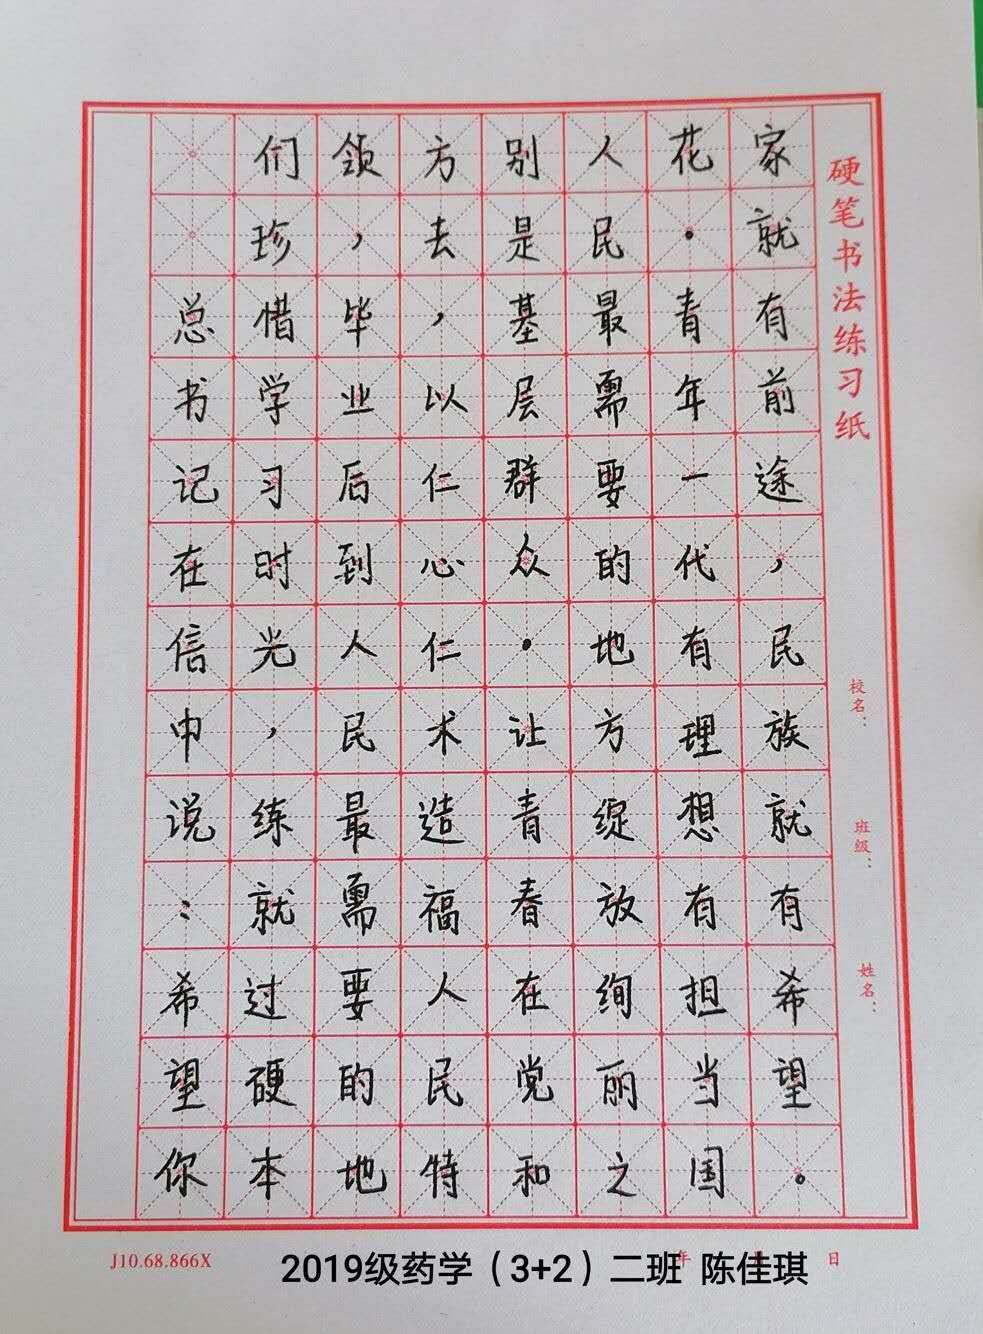 总书记在信中说：希望你
们珍惜学习时光，练就过硬本
领，毕业后到人民最需要的地
方去，以仁心仁术造福人民特
别是基层群众·让青春在党和
人民最需要的地方绽放绚丽之
花·青年一代有理想有担当国
家就有前途，民族就有希望。
硬笔书法练习纸
校名：
班级：
姓名：
J10.68.866X
年 日
2019级药学（3+2）二班 陈佳琪